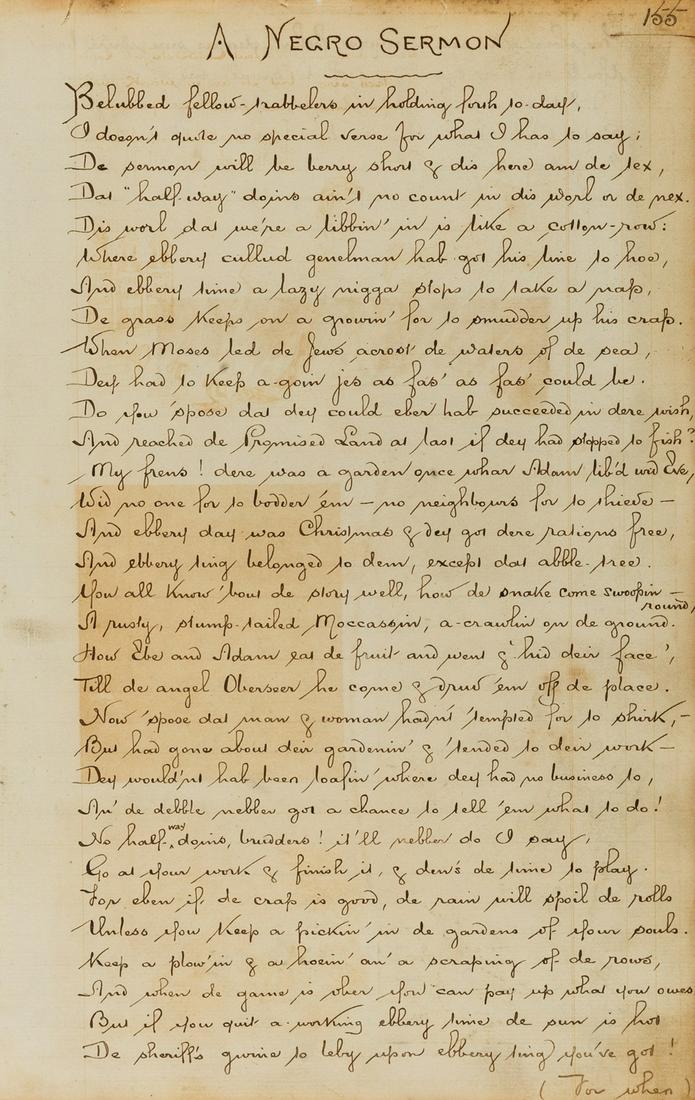 155
A NEGRO SERMON
Belubbed fellow-trabbelers in holding forth to-day,
I doesn't quote no special verse for what I has to say;
De sermon will be berry short & dis here am de tex,
Dat "half-way" doins ain't no count in dis worl or de nex.
Dis worl dat we're a libbin' in is like a cotton-row:
Where ebbery cullud genelman hab got his line to hoe,
And ebbery time a lazy nigga stops to take a nap,
De grass keeps on a growin' for to smudder up his crap.
When Moses led de Jews acrost de waters of de sea,
Dey had to keep a-goin jes as fas' as fas' could be.
Do you 'spose dat dey could eber hab succeeded in dere wish,
And reached de Promised Land at last if dey had stopped to fish?
My frens! dere was a garden once whar Adam lib'd wid Eve,
Wid no one for to bodder 'em — no neighbours for to thieve —
And ebbery day was Christmas & dey got dere rations free,
And ebbery ting belonged to dem, except dat abble-tree.
You all know 'bout de story well, how de snake come swoopin —
round,
A rusty, stump-tailed Moccassin, a-crawlin on de ground.
How Ebe and Adam eat de fruit and went & hid deir face',
Till de angel Oberseer he come & druv 'em off de place.
Now 'spose dat man & woman hadn't 'tempted for to shirk, -
But had gone about deir gardenin' & 'tended to deir work —
Dey would'nt hab been loafin' where dey had no business to,
An' de debble nebber got a chance to tell 'em what to do!
No half-way doins, brudders! it'll nebber do I say,
Go at your work & finish it, & den's de time to play.
For eben if de crap is good, de rain will spoil de rolls
Unless you keep a pickin' in de gardens of your souls.
Keep a plow'in & a hoein' an' a scraping of de rows,
And when de game is ober you can pay up what you owes
But if you quit a-working ebbery time de sun is hot
De sheriff's gwine to leby upon ebbery ting you've got!
(For when)